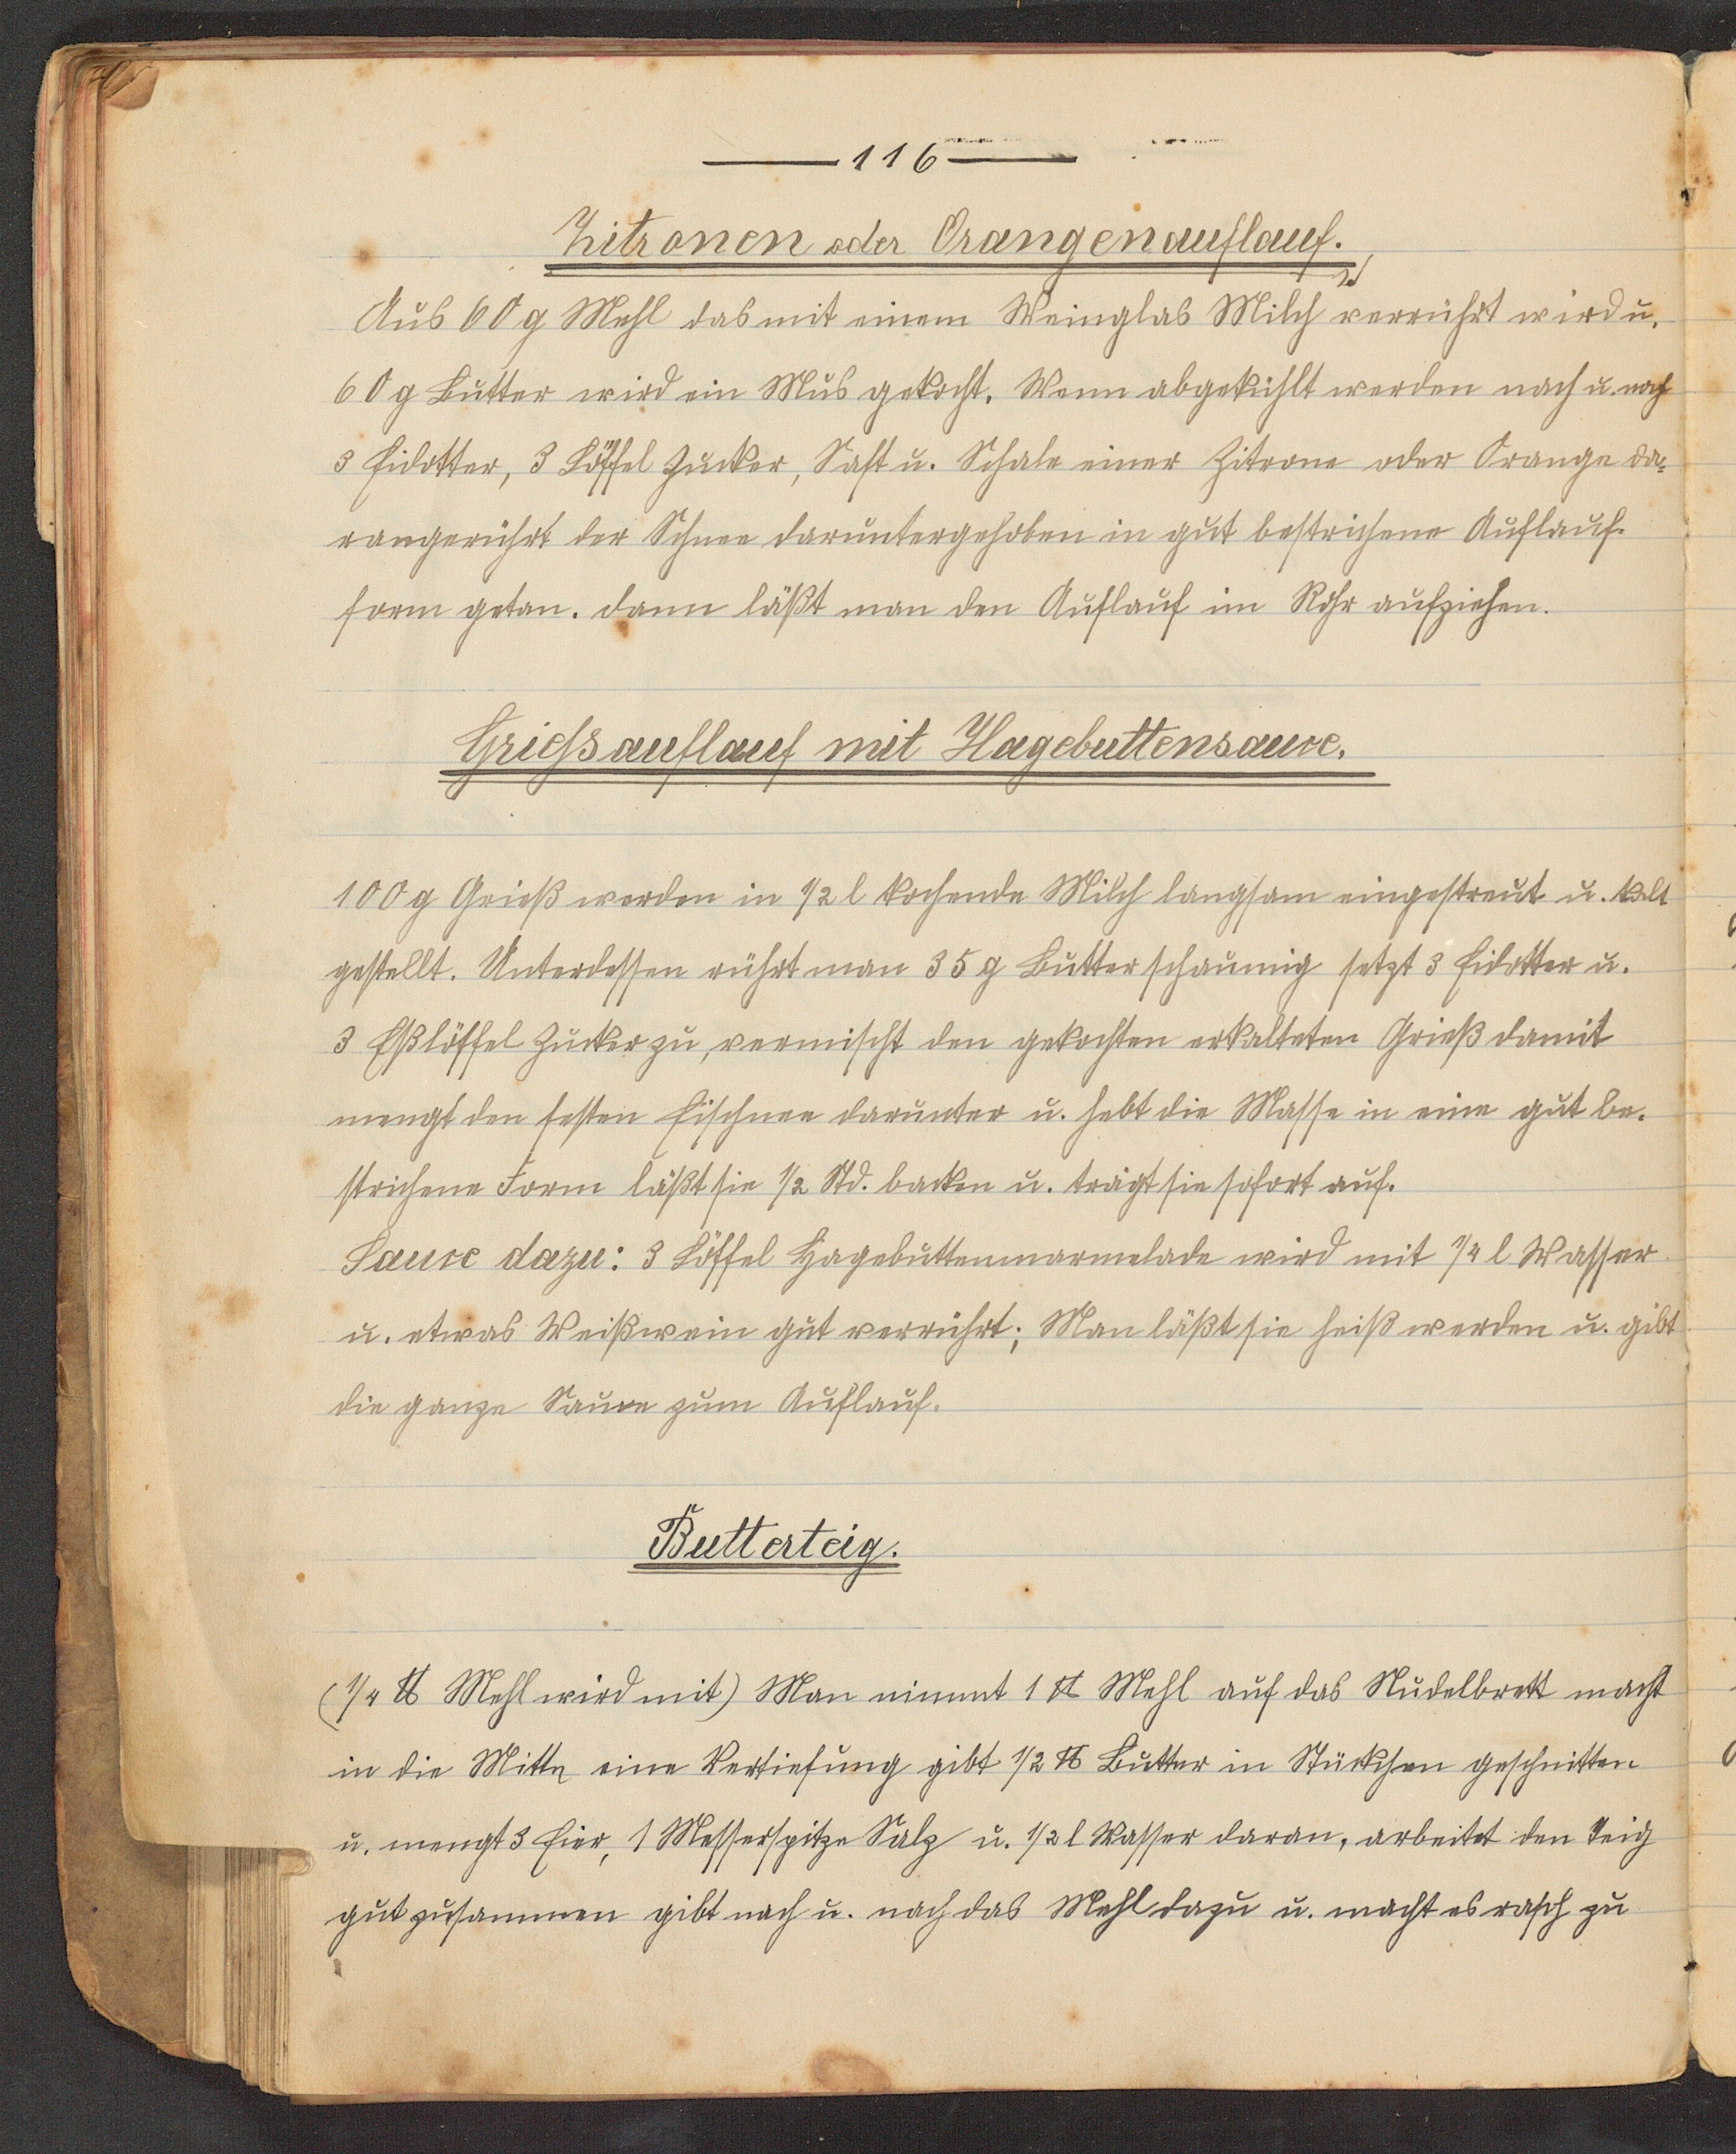 116
Zitronen oder Orangenauflauf.
Aus 60 g Mehl das mit einem Weinglas Milch verrührt wird u.
60 g Butter wird ein Mus gekocht. Wenn abgekühlt werden nach u. nach
3 Eidotter, 3 Löffel Zucker, Saft u. Schale einer Zitrone oder Orange da-
rangerührt der Schnee daruntergehoben in gut bestrichene Auflauf-
form getan. dann läßt man den Auflauf im Rohr aufziehen.
Griessauflauf mit Hagebuttensauce.
100 g Grieß werden in 1/2 l kochende Milch langsam eingestreut u. kalt
gestellt. Unterdessen rührt man 35 g Butter schaumig setzt 3 Eidotter u.
3 Eßlöffel Zucker zu, vermischt den gekochten erkalteten Grieß damit
mengt den festen Eischnee darunter u. hebt die Masse in eine gut be-
strichene Form läßt sie 1/2 Std. backen u. trägt sie sofort auf.
Sauce dazu: 3 Löffel Hagebuttenmarmelade wird mit 1/4 l Wasser
u. etwas Weißwein gut verrührt; Man läßt sie heiß werden u. gibt
die ganze Sauce zum Auflauf.
Butterteig.
(1/4 ℔ Mehl wird mit) Man nimmt 1 ℔ Mehl auf das Nudelbrett macht
in die Mitte eine Vertiefung gibt 1/2 ℔ Butter in Stückchen geschnitten
u. mengt 3 Eier, 1 Messerspitze Salz u. 1/2 l Wasser daran, arbeitet den Teig
gut zusammen gibt nach u. nach das Mehl dazu u. macht es rasch zu